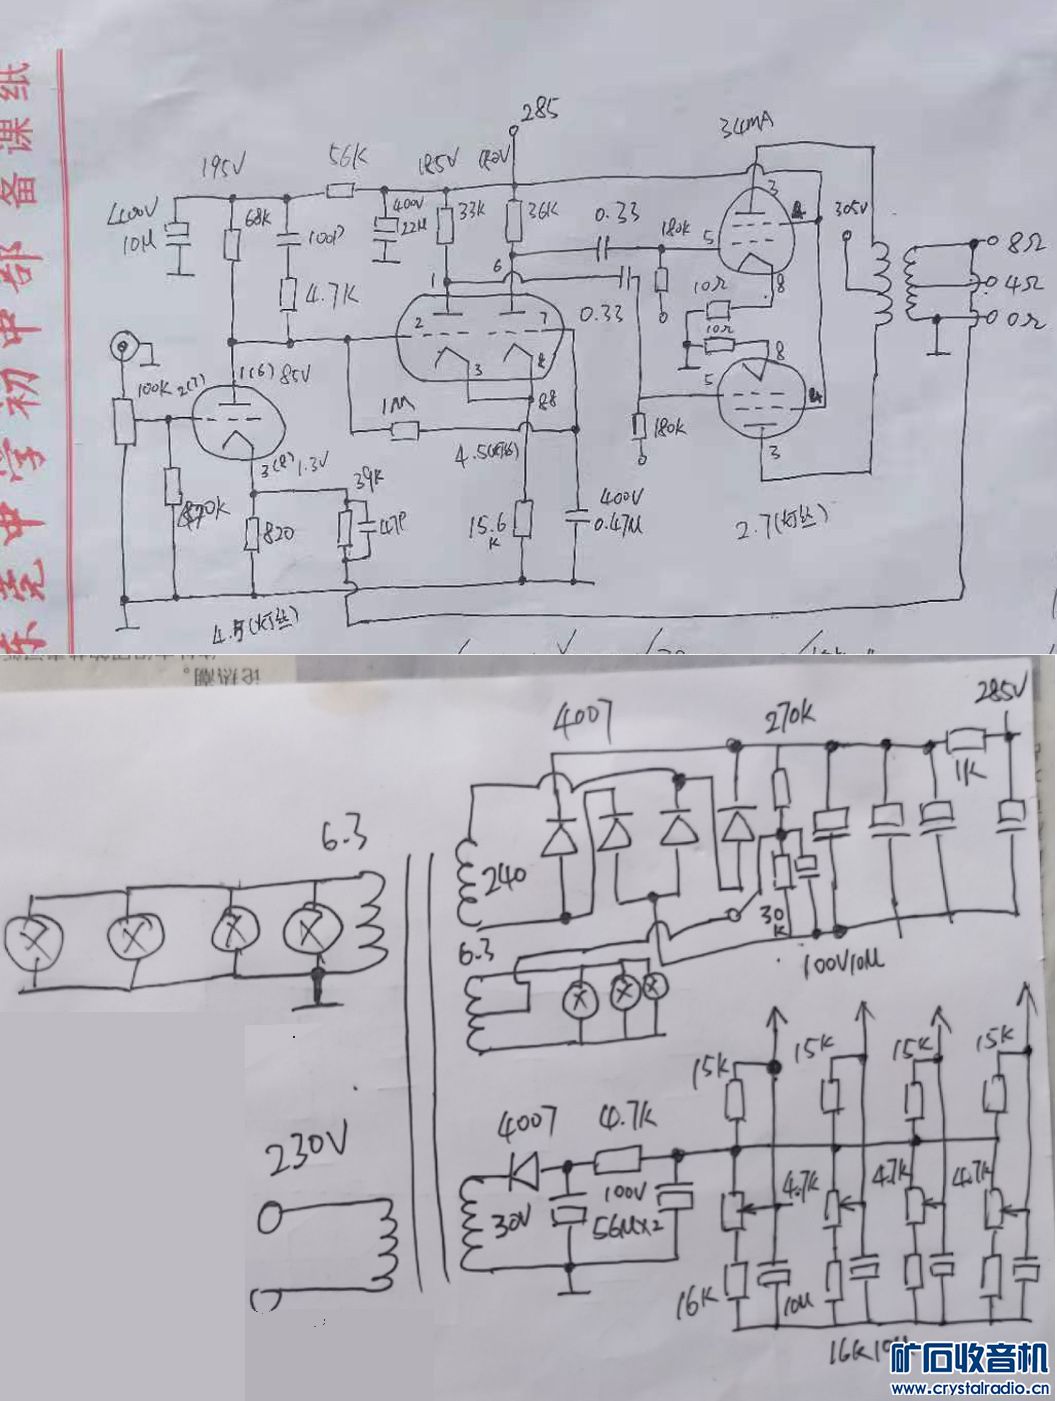 东莞中学初中部备课纸
285
34mA
195V
56K
185V
180V
3
400V
10μ
68K
100P
400V
22μ
33K
36K
0.33
180k
5
4
305V
8Ω
4.7K
1
6
0.33
10Ω
8
4Ω
2
7
10Ω
0Ω
100K
2(7)
1(6)
85V
3
8
88
8
5
4
1M
180K
3(8)
1.3V
4.5(灯丝)
3
39K
400V
0.47M
820
47P
15.6
K
2.7(灯丝)
4.5(灯丝)
论说题。
4007
270K
285V
1K
6.3
240
30
K
6.3
100V10μ
15K
15K
15K
15K
230V
4007
4.7K
30V
100V
56μx2
4.7K
4.7K
4.7K
16K
10μ
16K10μ
矿石收音机
www.crystalradio.cn